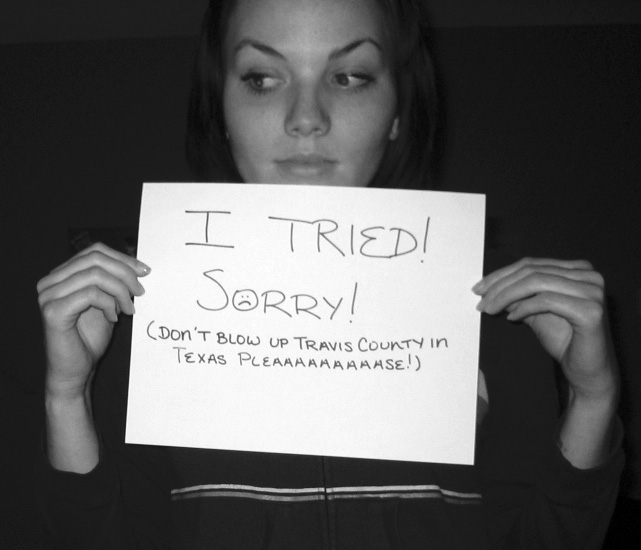 I TRIED!
SORRY!
(DON'T BLOW UP TRAVIS COUNTY IN
TEXAS PLEAAAAAAAAAASE!)